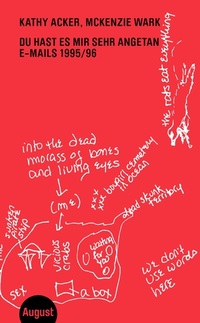 KATHY ACKER, MCKENZIE WARK
DU HAST ES MIR SEHR ANGETAN
E-MAILS 1995/96
the rats eat everything
into the dead
morass of bones
and living eyes
(me)
xxx
xxx
in ocean
dead skunk
territory
pirate
ship
vicious
crabs
waiting
for
you
we don't
use words
here
sex
a box
August